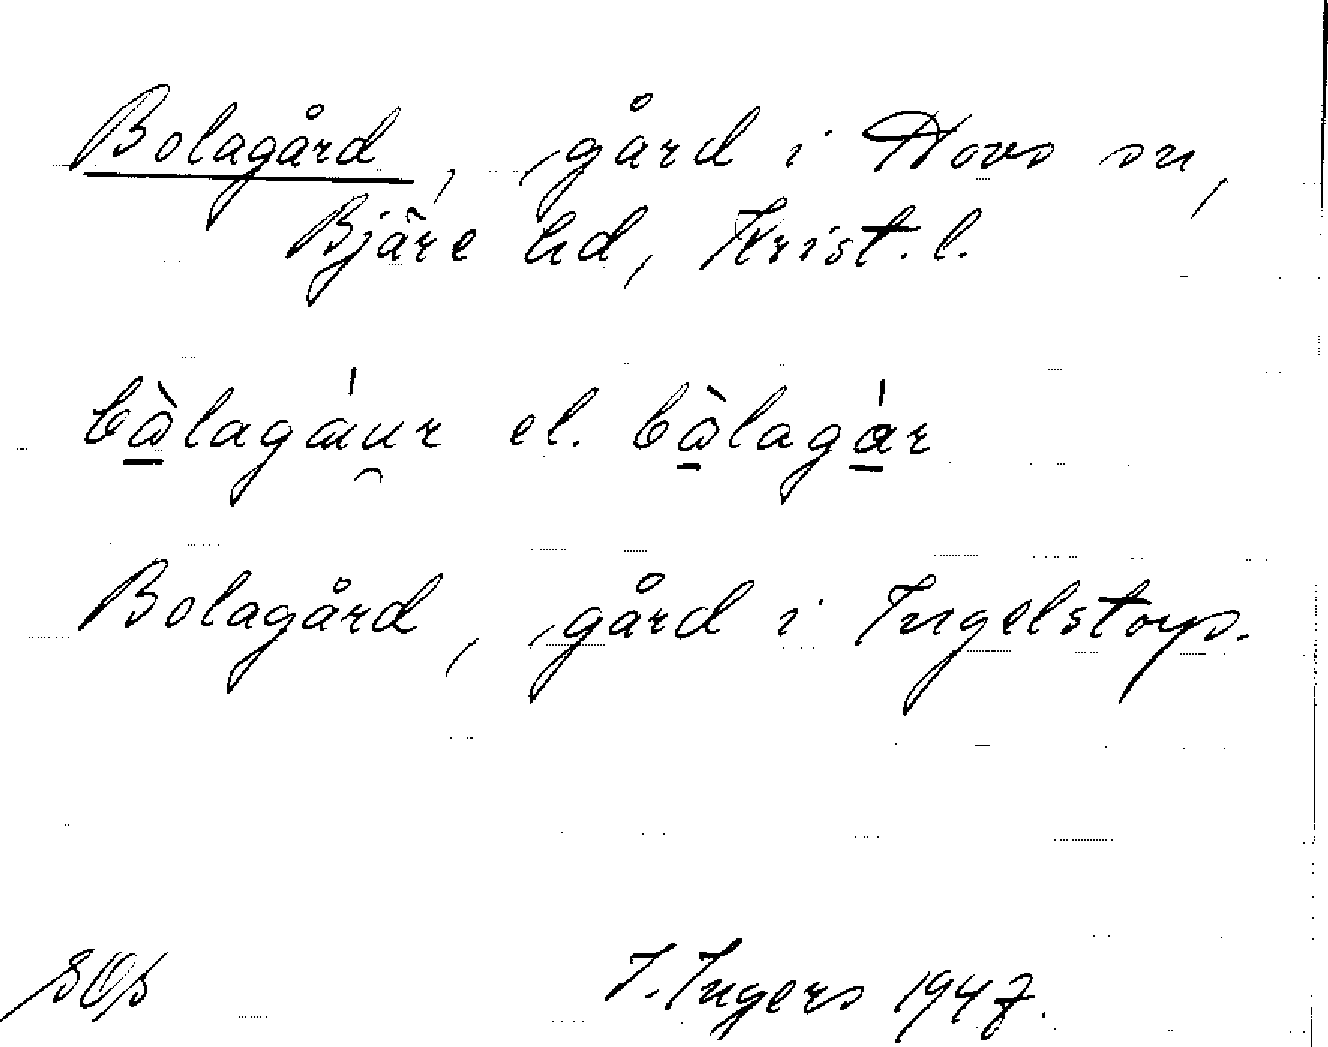 Bolagård, gård i Hovs sn,
Bjäre hd, Krist. l.
bòlagáur el. bòlagár
Bolagård, gård i Ingelstorp.
I. Ingers 1947.